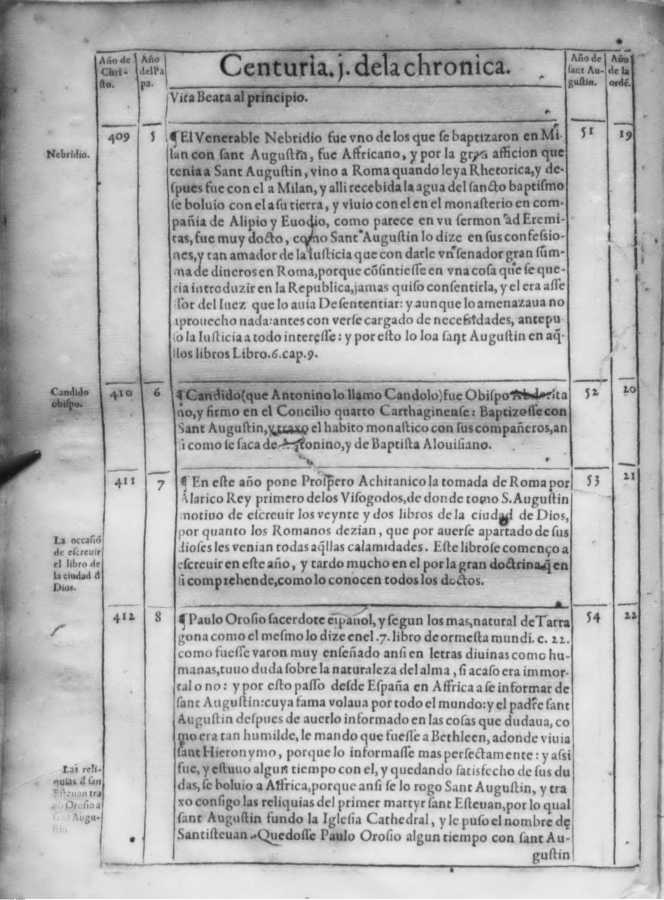 Año de Christo.
Año del Papa.
Centuria. j. dela chronica.
Año de sant Augustin.
Año de la ordē.
Vita Beata al principio.
Nebridio.
409
5
¶ El Venerable Nebridio fue vno de los que se baptizaron en Mi-
lan con sant Augustin, fue Affricano, y por la gran afficion que
tenia a Sant Augustin, vino a Roma quando leya Rhetorica, y de-
spues fue con el a Milan, y alli recebida la agua del sancto baptismo
se boluio con el a su tierra, y viuio con el en el monasterio en com-
pañia de Alipio y Euodio, como parece en vu sermon ad Eremi-
tas, fue muy docto, como Sant Augustin lo dize en sus confessio-
nes, y tan amador de la Iusticia que con darle vn senador gran sum-
ma de dineros en Roma, porque cōsintiesse en vna cosa que se que-
cia introduzir en la Republica, jamas quiso consentirla, y el era asse
sor del Iuez que lo auia De sententiar: y aunque lo amenazaua no
aprouecho nada: antes con verse cargado de necessidades, antepu
so la Iusticia a todo interesse: y por esto lo loa sant Augustin en aq̃
llos libros Libro. 6. cap. 9.
51
19
Candido
obispo.
410
6
¶ Candido (que Antonino lo llamo Candolo) fue Obispo
no, y firmo en el Concilio quarto Carthaginense: Baptizosse con
Sant Augustin, y traxo el habito monastico con sus compañeros, an
si como se saca de Antonino, y de Baptista Alouisiano.
52
20
411
7
¶ En este año pone Prospero Achitanico la tomada de Roma por
Alarico Rey primero delos Visogodos, de donde tomo S. Augustin
motiuo de escreuir los veynte y dos libros de la ciudad de Dios,
por quanto los Romanos dezian, que por auerse apartado de sus
dioses les venian todas aq̃llas calamidades. Este libro se començo a
escreuir en este año, y tardo mucho en el por la gran doctrina q̃ en
si comprehende, como lo conocen todos los doctos.
53
21
La occasiō
de escreuir
el libro de
la ciudad d̃
Dios.
412
8
¶ Paulo Orosio sacerdote español, y segun los mas, natural de Tarra
gona como el mesmo lo dize en el .7. libro de ormesta mundi. c. 22.
como fuesse varon muy enseñado ansi en letras diuinas como hu-
manas, tuuo duda sobre la naturaleza del alma, si acaso era immor-
tal o no: y por esto passo desde España en Affrica a se informar de
sant Augustin: cuya fama volaua por todo el mundo: y el padre sant
Augustin despues de auerlo informado en las cosas que dudaua, co
mo era tan humilde, le mando que fuesse a Bethleen, adonde viuia
sant Hieronymo, porque lo informasse mas perfectamente: y assi
fue, y estuuo algun tiempo con el, y quedando satisfecho de sus du
das, se boluio a Affrica, porque ansi se lo rogo Sant Augustin, y tra
xo consigo las reliquias del primer martyr sant Esteuan, por lo qual
sant Augustin fundo la Iglesia Cathedral, y le puso el nombre de
Santisteuan. Quedosse Paulo Orosio algun tiempo con sant Au-
gustin
54
22
Las reli-
quias d̃ san
Esteuan tra
xo Orosio a
sant Augu-
stin.